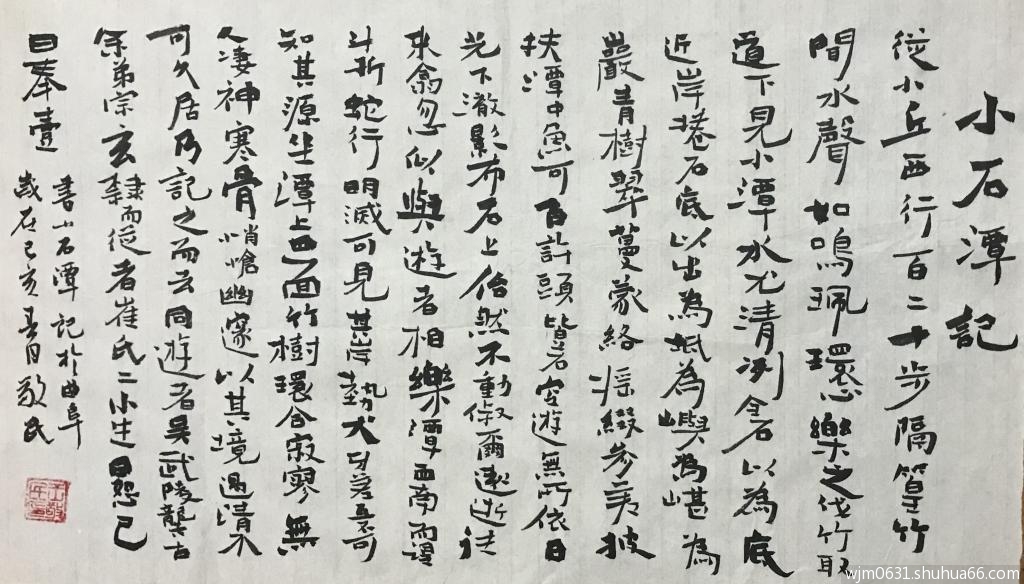 小石潭記
從小丘西行百二十步隔篁竹
間水聲如鳴珮環心樂之伐竹取
道下見小潭水尤清冽全石以為底
近岸捲石底以出為坻為嶼為嵁為
巖青樹翠蔓蒙絡搖綴參差披
拂潭中魚可百許頭皆若空遊無所依日
光下澈影布石上佁然不動俶爾遠逝往
來翕忽似與遊者相樂潭西南而望
斗折蛇行明滅可見其岸勢犬牙差互不可
知其源坐潭上四面竹樹環合寂寥無
人淒神寒骨悄愴幽邃以其境過清不
可久居乃記之而去同遊者吳武陵龔古
余弟宗玄隸而從者崔氏二小生曰恕己
曰奉壹
書小石潭記於曲阜
歲在己亥春日敬民
wjm0631.shuhua66.com